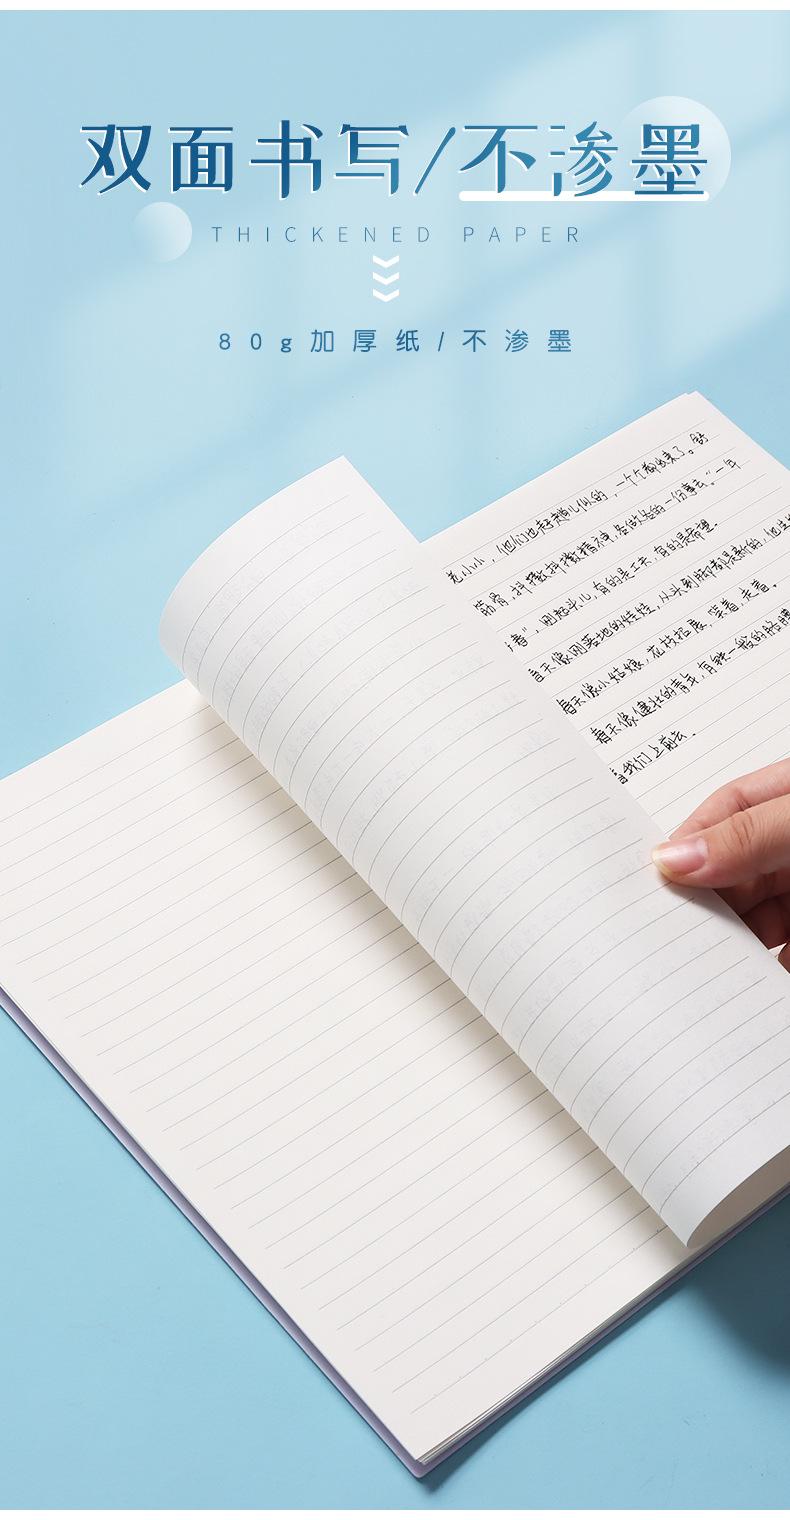 双面书写/不渗墨
THICKENED PAPER
80g加厚纸/不渗墨
老小小，他们也赶趟儿似的，一个个都出来了。舒
筋骨，抖擞抖擞精神，各做各的一份事去。“一年
”，刚起头儿，有的是工夫，有的是希望。
春天像刚落地的娃娃，从头到脚都是新的，他生
春天像小姑娘，花枝招展，笑着，走着。
春天像健壮的青年，有铁一般的胳膊
着我们上前去。